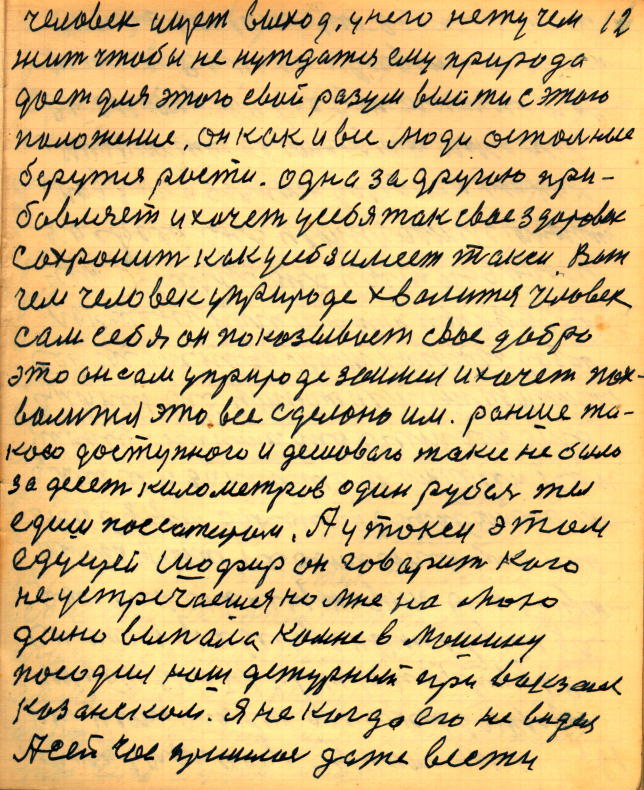 человек ищет выход, у него нету чем 12
жит чтобы не нуждатся ему природа
дает для этого свой разум выйти с этого
положение, он как и все люди остольные
берутся рости. одна за другою при-
бовляет и хочет у себя так свое здоровье
сохронит как у себя имеет такси Вот
чем человек у природе хвалится человек
сам себя он показывает свое добро
это он сам у природе занял и хочет пох-
валится это все сделоно им. ранше та-
кого доступного и дешоваго такси не было
за десет километров один рубел ты
едиш поссажиром. А у такси этом
едущей шофир он говарит кого
не устречаешся но мне на мою
долю выпала ко мне в мошину
посодил наш дежурный при вокзале
козанском. Я не когда его не видел
А сей час пришлос даже вести